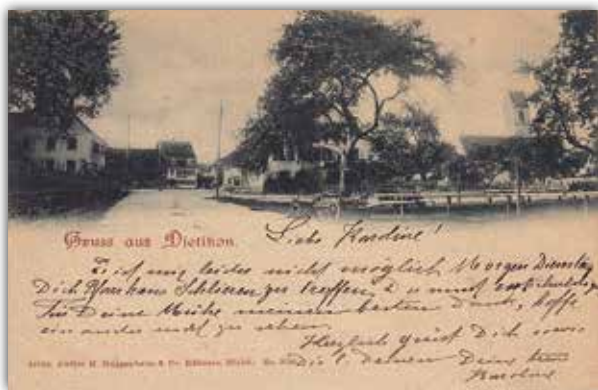 Gruss aus Dietikon.
Liebe Karoline!
Es ist mir leider nicht möglich Morgen Dienstag
Dich Pfarrhaus Schlieren zu treffen & u
für Deine Mühe meinen besten Dank, hoffe
ein ander mal zu sehen.
Herzlich grüsst Dich sowie
die l. Deinen Deine
Karoline